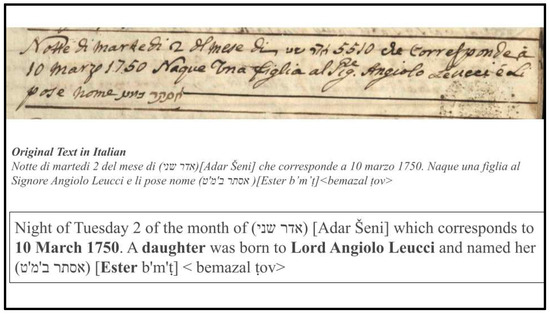 Notte di martedi 2 dl mese di אדר שני 5510 che corresponde à
10 marzo 1750 Naque Una figlia al Sig.re Angiolo Leucci é Li
pose nome אסתר במט
Original Text in Italian
Notte di martedi 2 del mese di (אדר שני)[Adar Šeni] che corresponde a 10 marzo 1750. Naque una figlia al
Signore Angiolo Leucci e li pose nome (אסתר ב'מ'ט )[Ester b’m’ṭ]<bemazal ṭov>
Night of Tuesday 2 of the month of (אדר שני) [Adar Šeni] which corresponds to
10 March 1750. A daughter was born to Lord Angiolo Leucci and named her
(אסתר ב'מ'ט) [Ester b'm'ṭ] < bemazal ṭov>